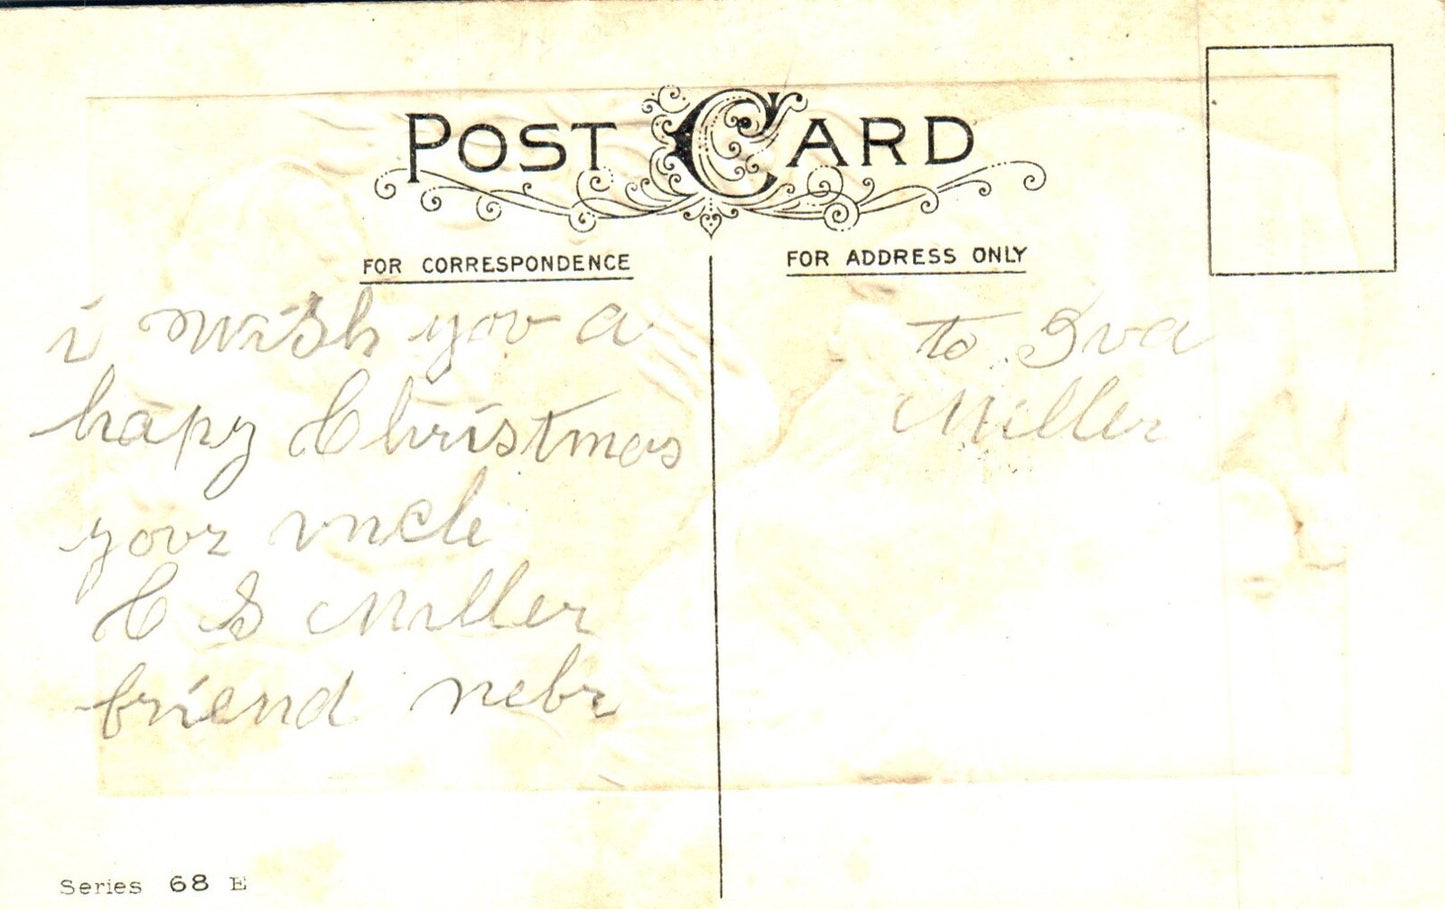 POST CARD
FOR CORRESPONDENCE
FOR ADDRESS ONLY
i wish you a
hapy Christmas
your uncle
C S Miller
friend nebr
to Iva
Miller
Series 68 E